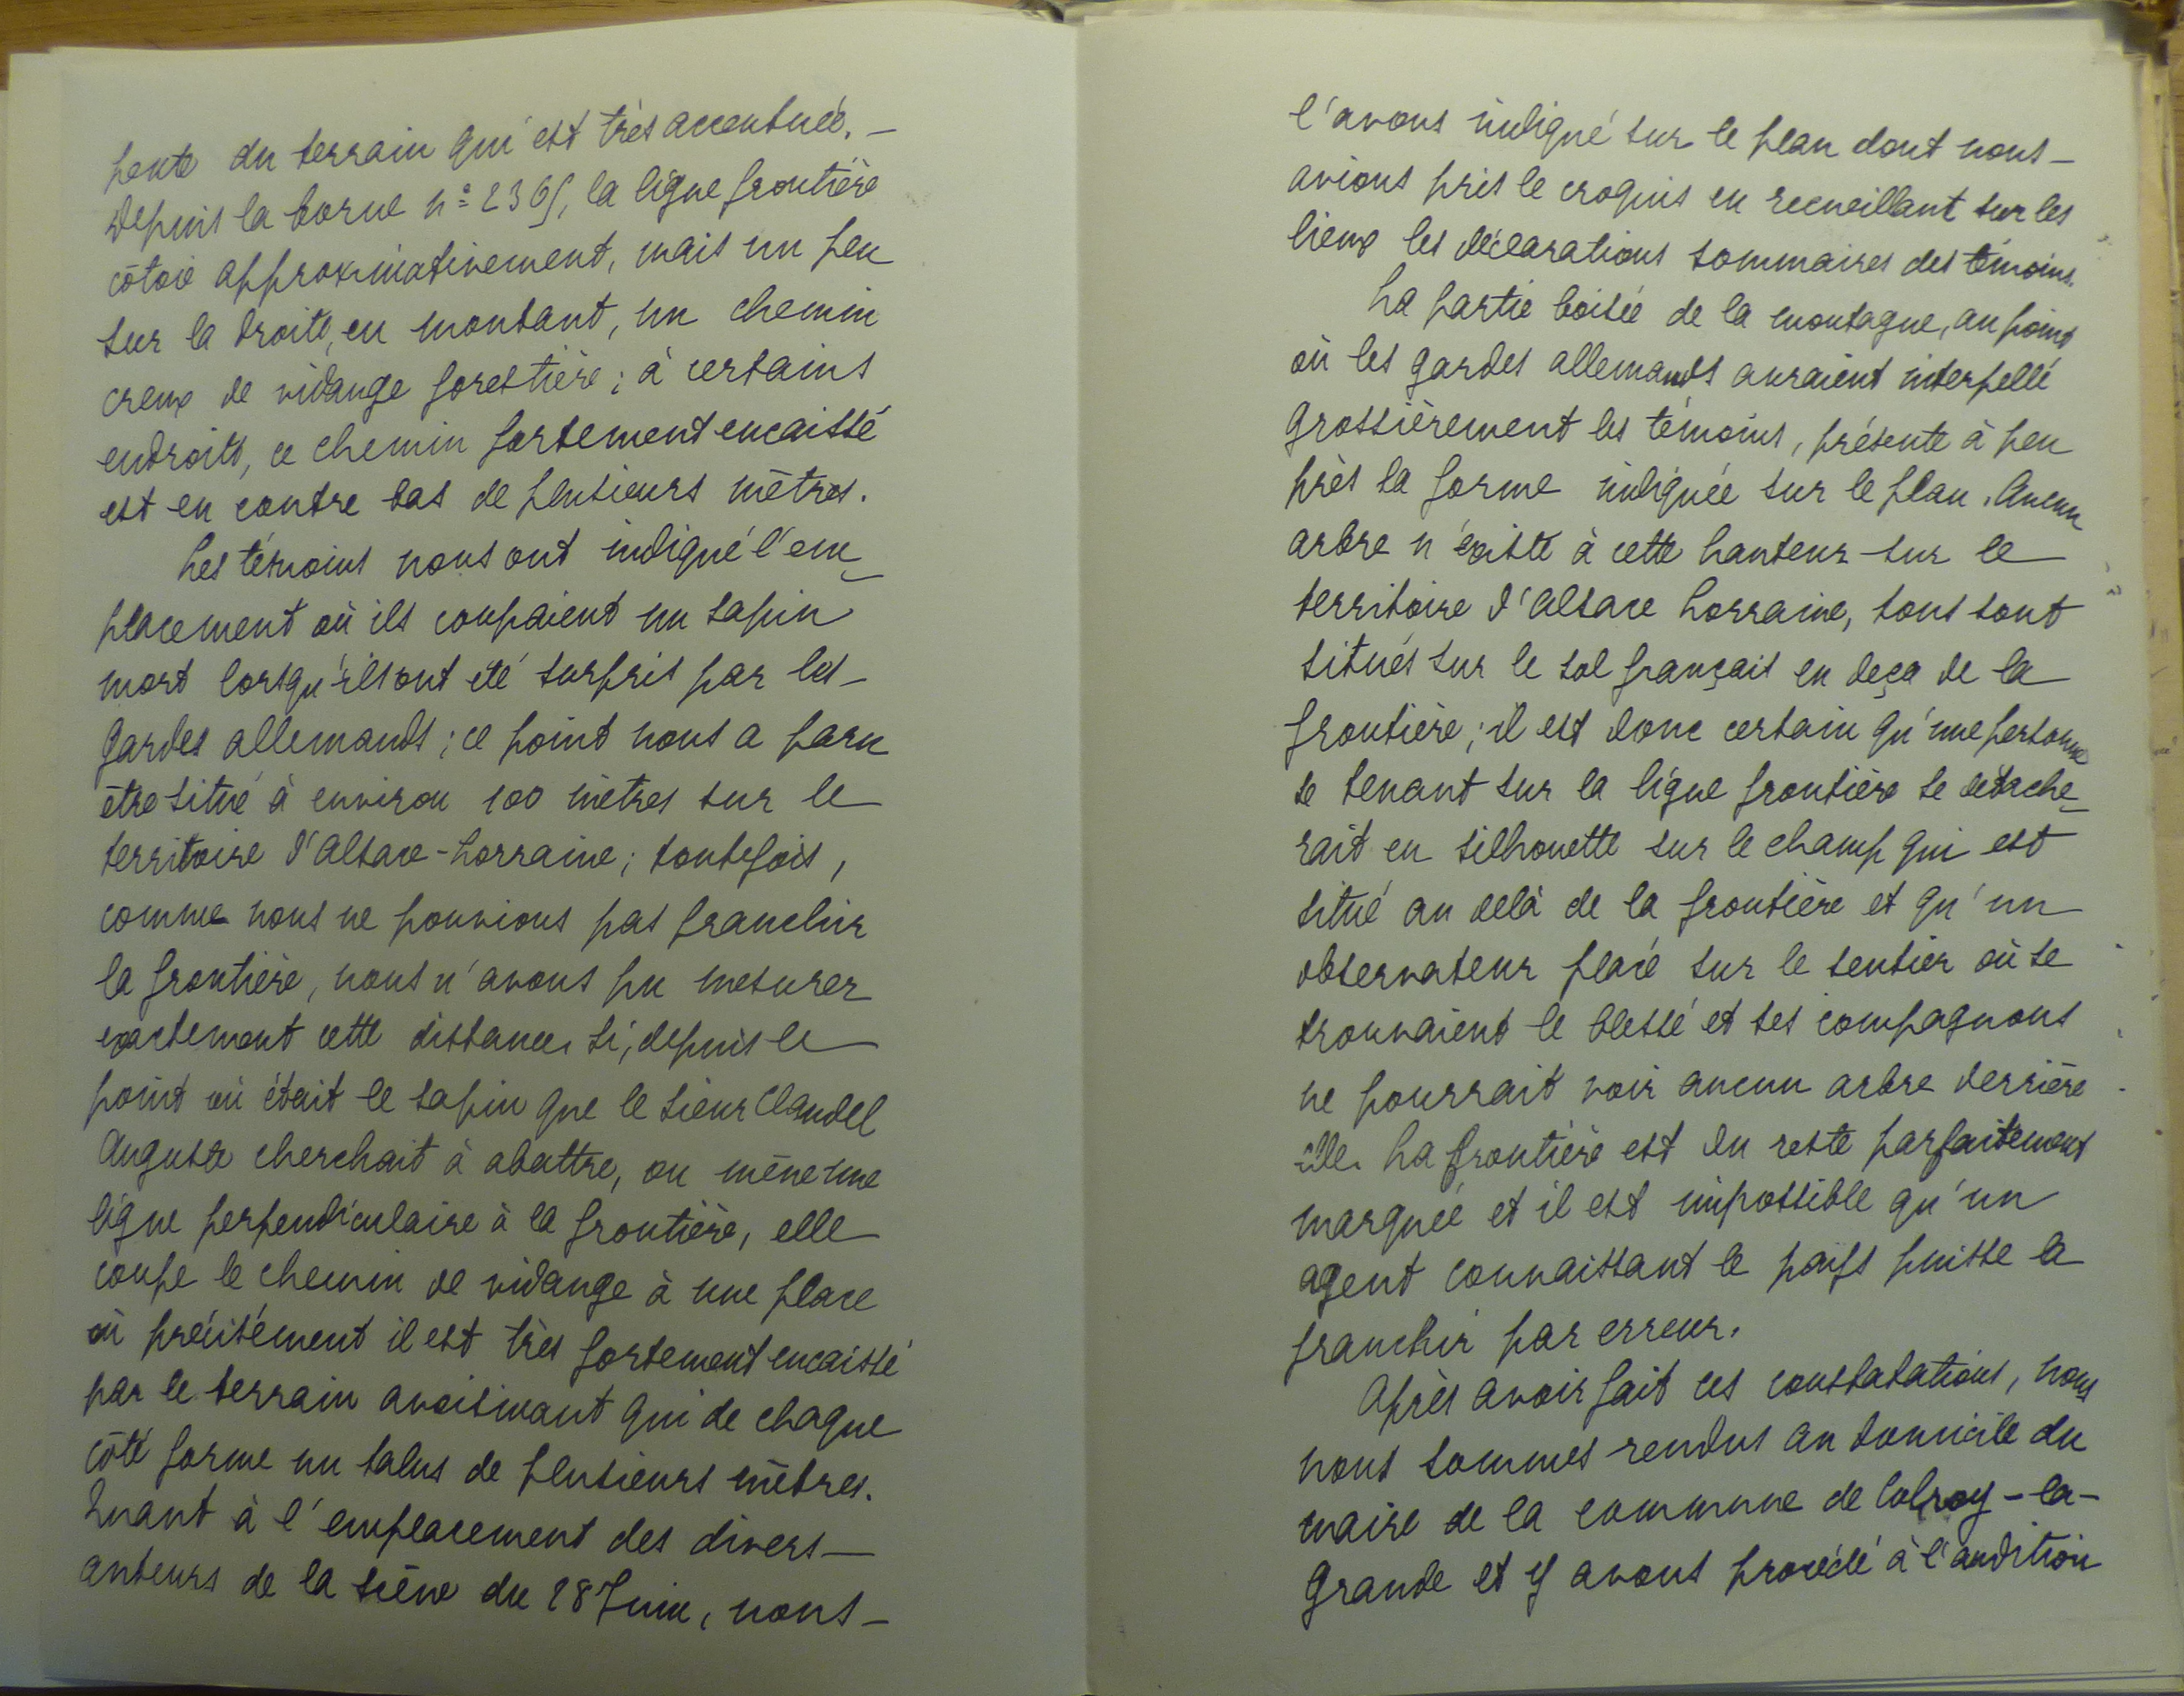 pente du terrain qui est très accentuée. –
Depuis la borne n° 2365, la ligne frontière
côtoie approximativement, mais un peu
sur la droite, en montant, un chemin
creux de vidange forestière ; à certains
endroits, ce chemin fortement encaissé
est en contre bas de plusieurs mètres.
Les témoins nous ont indiqué l'em-
placement où ils coupaient un sapin
mort lorsqu'ils ont été surpris par les –
gardes allemands ; ce point nous a paru
être situé à environ 100 mètres sur le
territoire d'Alsace-Lorraine ; toutefois,
comme nous ne pouvions pas franchir
la frontière, nous n'avons pu mesurer
exactement cette distance. Si, depuis le
point où était le sapin que le sieur Claudel
Auguste cherchait à abattre, on mène une
ligne perpendiculaire à la frontière, elle
coupe le chemin de vidange à une place
où précisément il est très fortement encaissé
par le terrain avoisinant qui de chaque
côté forme un talus de plusieurs mètres.
Quant à l'emplacement des divers –
auteurs de la scène du 28 Juin, nous –
l'avons indiqué sur le plan dont nous –
avions pris le croquis en recueillant sur les
lieux les déclarations sommaires des témoins.
La partie boisée de la montagne, au point
où les gardes allemands auraient interpellé
grossièrement les témoins, présente à peu
près la forme indiquée sur le plan. Aucun
arbre n'existe à cette hauteur sur le
territoire d'Alsace Lorraine, tous sont
situés sur le sol français en deça de la
frontière ; il est donc certain qu'une personne
se tenant sur la ligne frontière se détache-
rait en silhouette sur le champ qui est
situé au delà de la frontière et qu'un
observateur placé sur le sentier où se
trouvaient le blessé et ses compagnons
ne pourrait voir aucun arbre derrière
elle. La frontière est du reste parfaitement
marquée et il est impossible qu'un
agent connaissant le pays puisse la
franchir par erreur.
Après avoir fait ces constatations, nous
nous sommes rendus au domicile du
maire de la commune de Colroy-la-
Grande et y avons procédé à l'audition